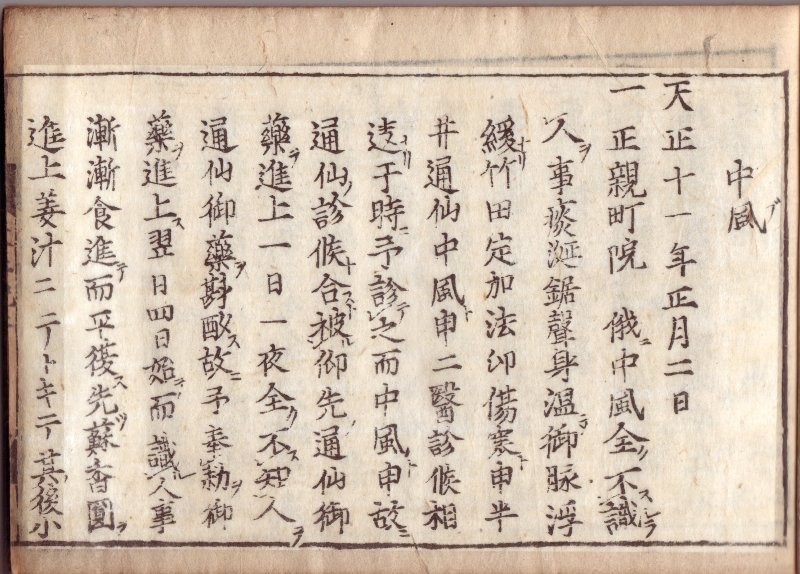 中風
天正十一年正月二日
一 正親町院 俄ニ中風全ク不スレラ識
人ヲ事痰涎鋸聲身温ニ御脉浮
緩ナリ竹田定加法印傷寒ト申半
井通仙中風ト申二醫診候相
違ナリ于時ニ予診テ之而中風ト申故ニ
通仙ノ診候ト合スト被ル仰先通仙御
藥ヲ進上一日一夜全ク不ス知人ヲ
通仙御藥ヲ斟酌ス故ニ予奉勅ヲ御
藥ヲ進上ス翌日四日始テ而識ル人事
漸漸食進テ而平復ス先ツ蘇香圓ヲ
進上姜汁ニテトキテ其後小